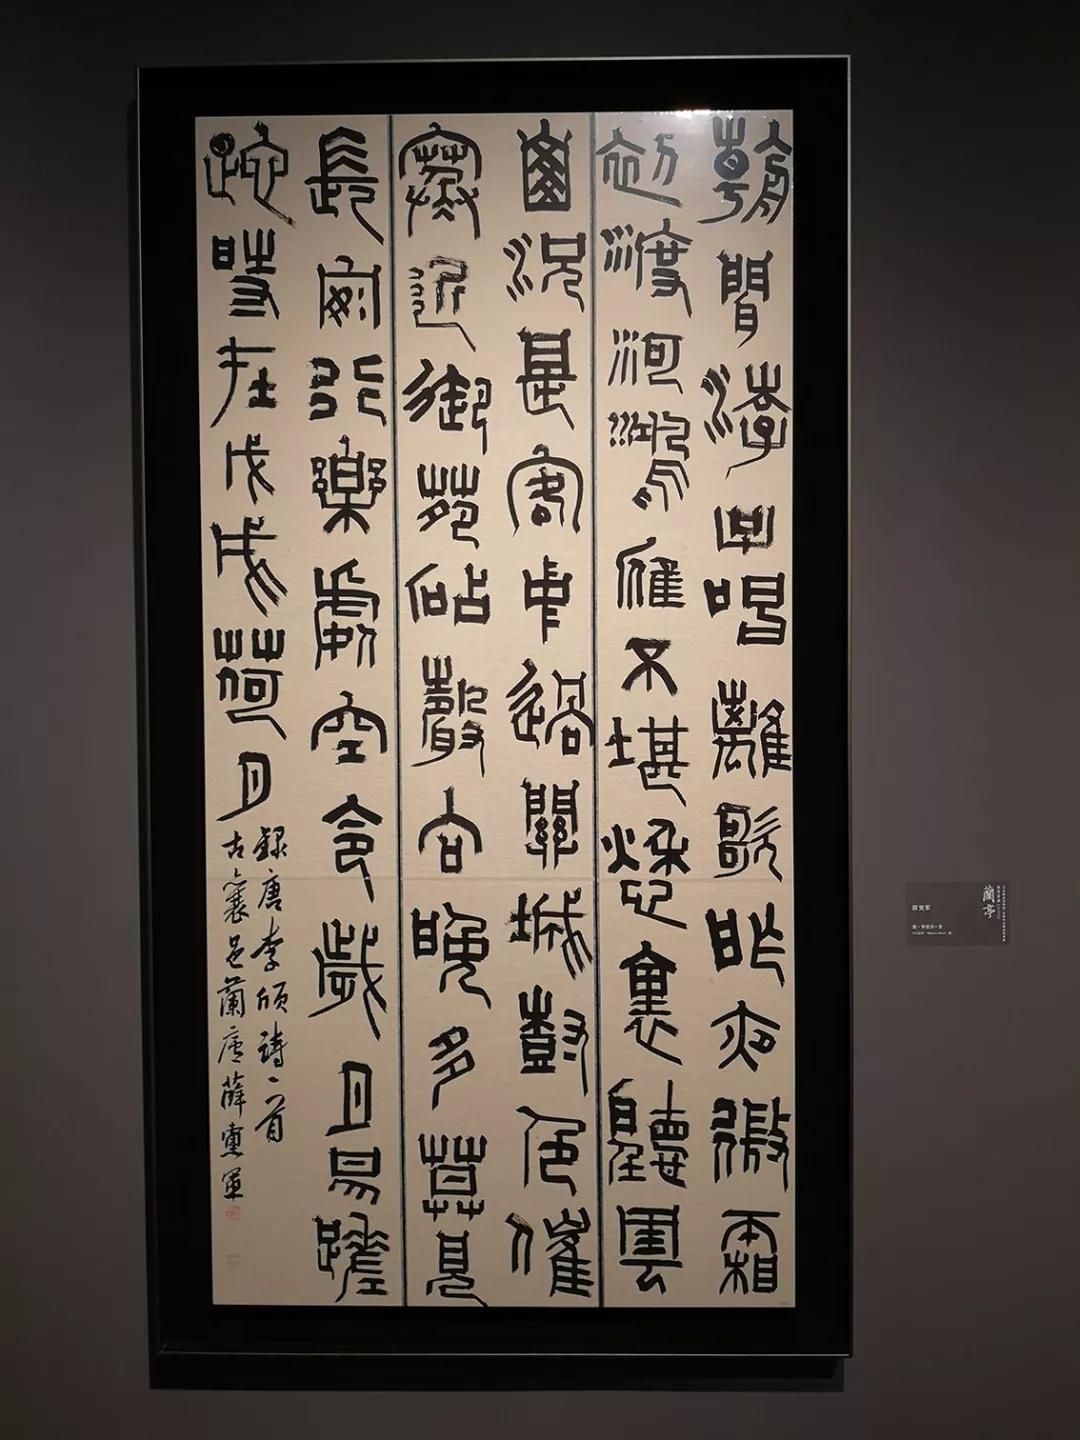 朝聞游子唱離歌昨夜微霜
初渡河鴻雁不堪愁裏聽雲
山況是客中過關城樹色催
寒近御苑砧聲向晚多莫見
長安行樂處空令歲月易蹉
跎時在戊戌荷月
錄唐李頎詩一首
古襄邑蘭唐薛黨軍
蘭亭
薛党军